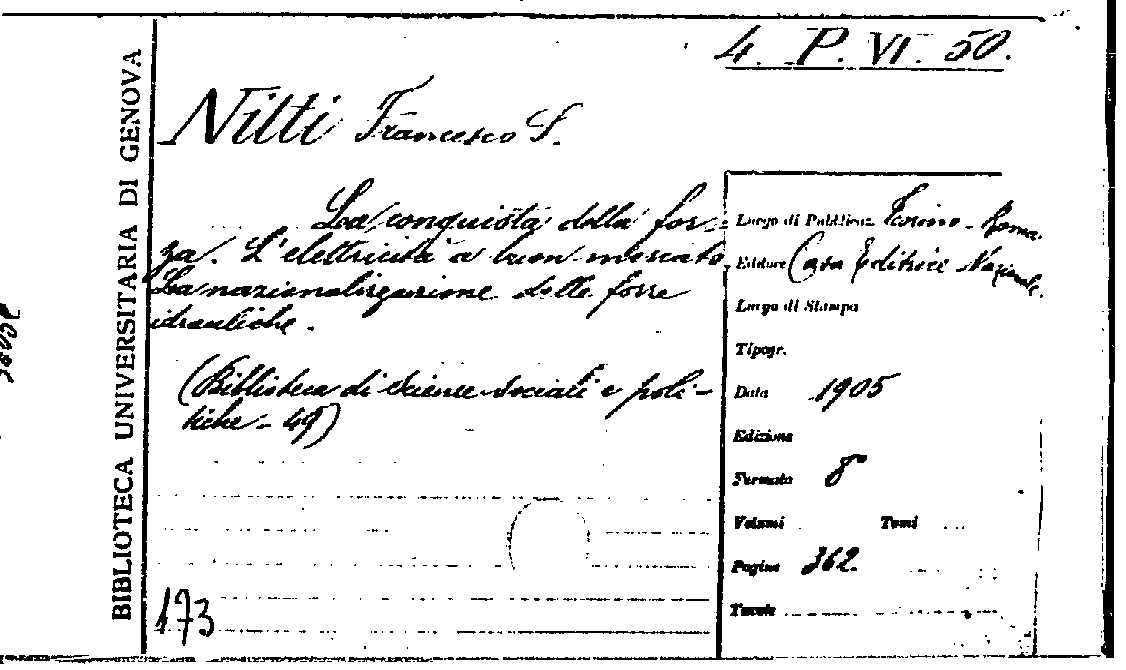 4. P. VI. 50.
BIBLIOTECA UNIVERSITARIA DI GENOVA
Nitti Francesco S.
La conquista della for-
za. L'elettricità a buon mercato,
La nazionalizzazione delle forze
idrauliche.
(Biblioteca di Scienze sociali e poli-
tiche - 49)
173
Luogo di Pubblicaz. Torino - Roma.
Editore Casa Editrice Nazionale.
Luogo di Stampa
Tipogr.
Data 1905
Edizione
Formato 8°
Volumi Tomi
Pagine 362
Tavole